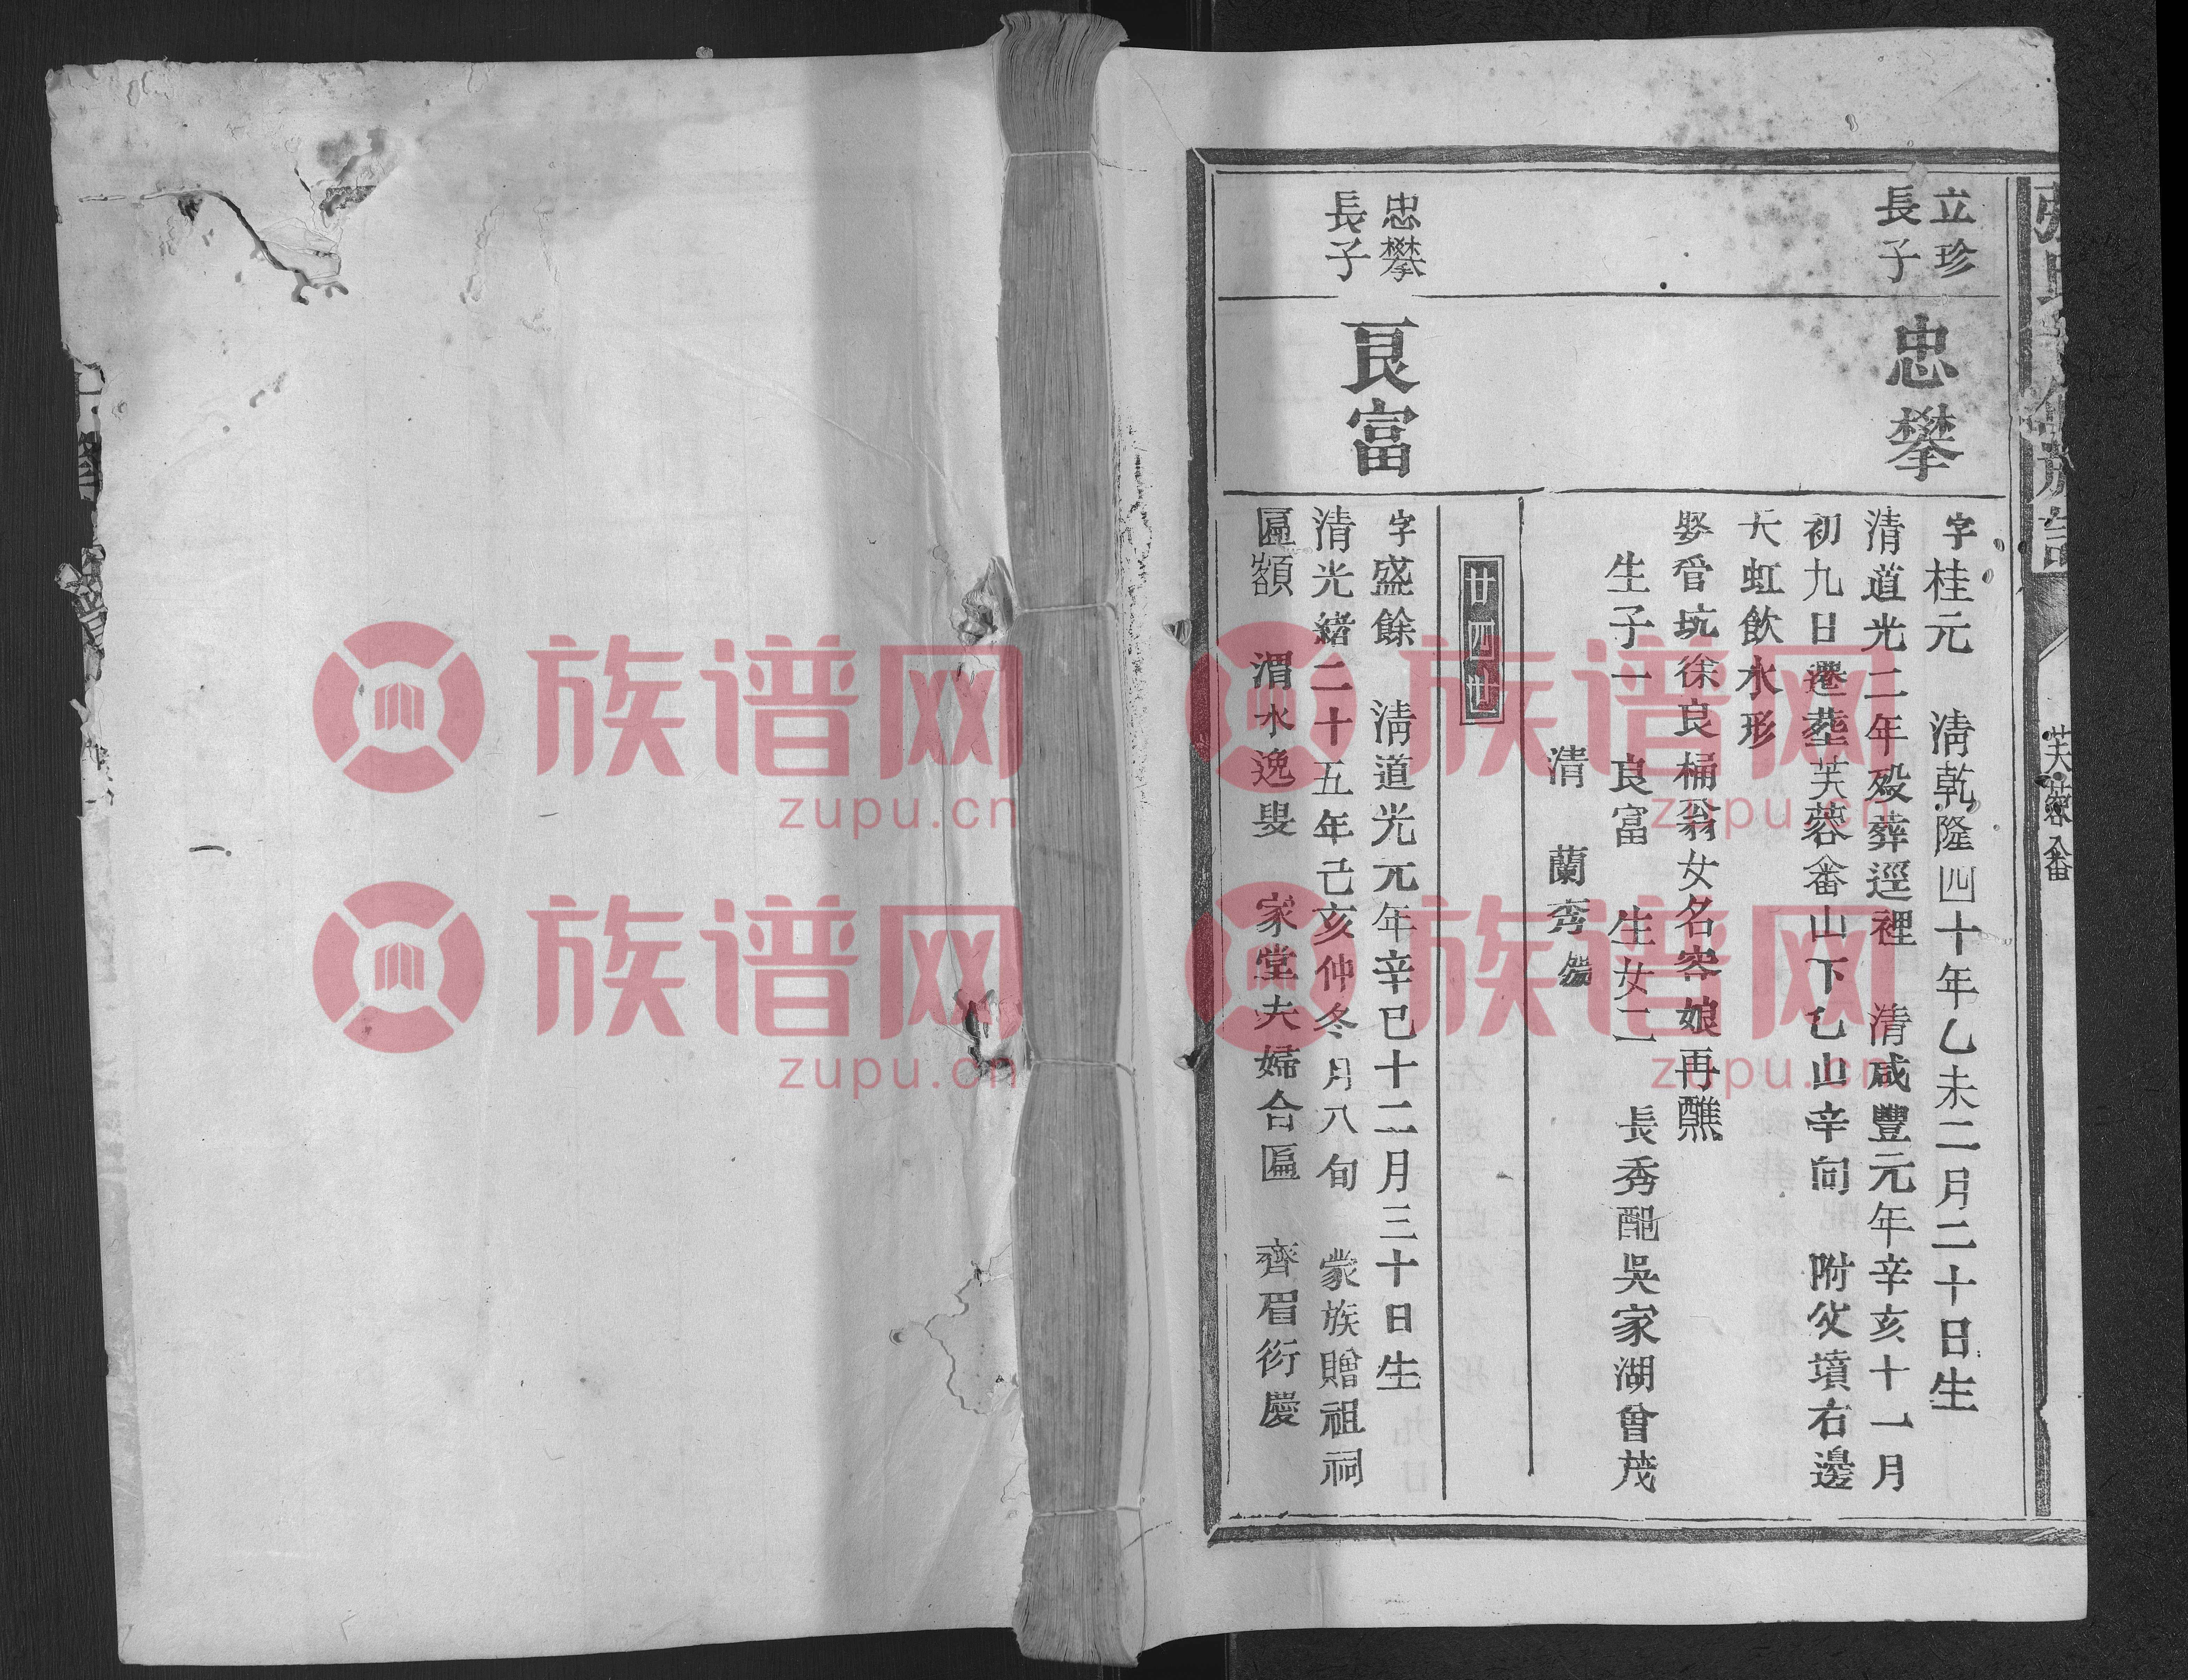 芙蓉畲
立珍
長子
忠攀
字桂元 淸乾隆四十年乙未二月二十日生
清道光二年殁葬逕裡 清咸豐元年辛亥十一月
初九日遷塟芙蓉畲山下乙山辛向 附父墳右邊
天虹飲水形
娶睂坑徐良桶翁女名容娘再醮
生子一 良富 生女二 長秀配吳家湖曾茂
清 蘭秀
廿四世
忠攀
長子
良富
字盛餘 淸道光元年辛巳十二月三十日生
清光緒二十五年己亥仲冬月八旬 蒙族贈祖祠
匾額 渭水逸叟 家堂夫婦合匾 齊眉衍慶
族谱网
zupu.cn
族谱网
zupu.cn
族谱网
zupu.cn
族谱网
zupu.cn